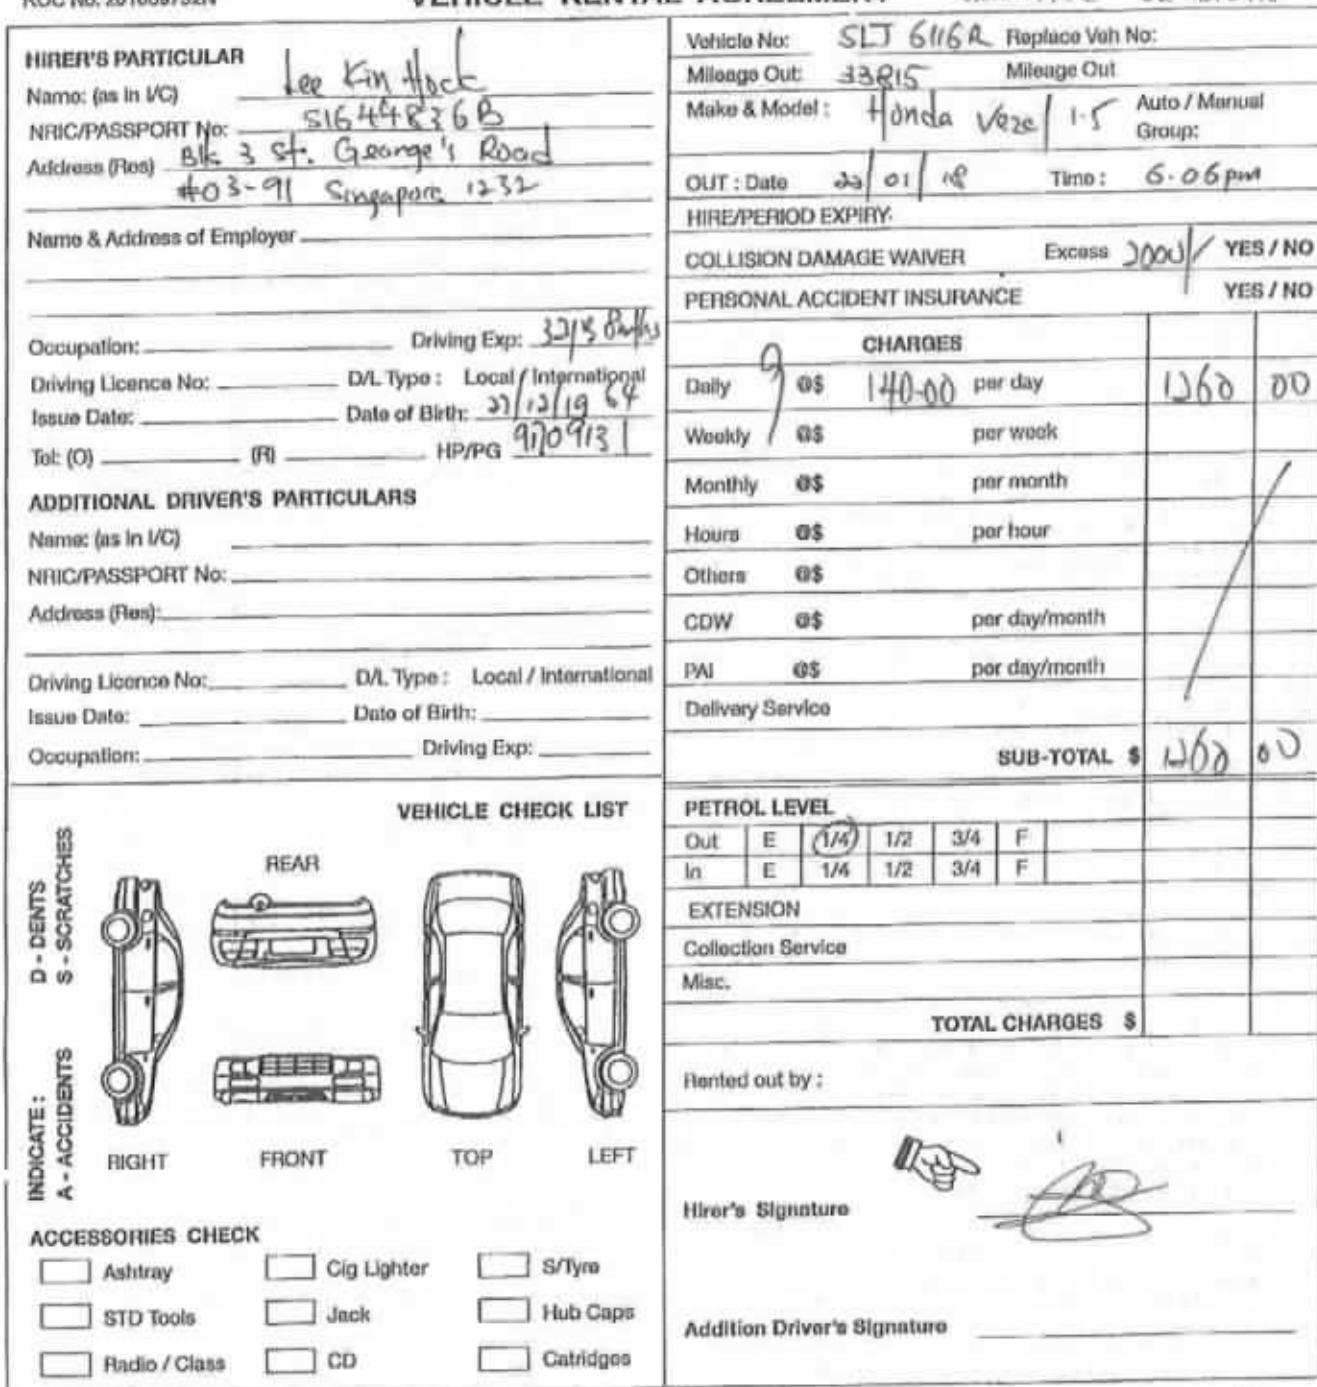 VEHICLE RENTAL AGREEMENT
HIRER'S PARTICULAR
Name: (as in I/C) Lee Kin Hock
NRIC/PASSPORT No: S1644836B
Address (Res) Blk 3 St. George's Road
#03-91 Singapore 1232
Name & Address of Employer
Occupation: Driving Exp:
Driving Licence No: D/L Type : Local / International
Issue Date: Date of Birth: 27/12/19 64
Tel: (O) (R) HP/PG 91709131
ADDITIONAL DRIVER'S PARTICULARS
Name: (as in I/C)
NRIC/PASSPORT No:
Address (Res):
Driving Licence No: D/L Type : Local / International
Issue Date: Date of Birth:
Occupation: Driving Exp:
VEHICLE CHECK LIST
INDICATE :
A - ACCIDENTS
D - DENTS
S - SCRATCHES
REAR
RIGHT FRONT TOP LEFT
ACCESSORIES CHECK
Ashtray Cig Lighter S/Tyre
STD Tools Jack Hub Caps
Radio / Class CD Catridges
Vehicle No: SLJ 6116R Replace Veh No:
Mileage Out: 33815 Mileage Out
Make & Model : Honda Vezel 1.5 Auto / Manual
Group:
OUT : Date 22/01/18 Time : 6.06pm
HIRE/PERIOD EXPIRY:
COLLISION DAMAGE WAIVER Excess 2000/ YES / NO
PERSONAL ACCIDENT INSURANCE YES / NO
CHARGES
Daily 9 @$ 140.00 per day 1260 00
Weekly @$ per week
Monthly @$ per month
Hours @$ per hour
Others @$
CDW @$ per day/month
PAI @$ per day/month
Delivery Service
SUB-TOTAL $ 1260 00
PETROL LEVEL
Out E 1/4 1/2 3/4 F
In E 1/4 1/2 3/4 F
EXTENSION
Collection Service
Misc.
TOTAL CHARGES $
Rented out by :
Hirer's Signature
Addition Driver's Signature